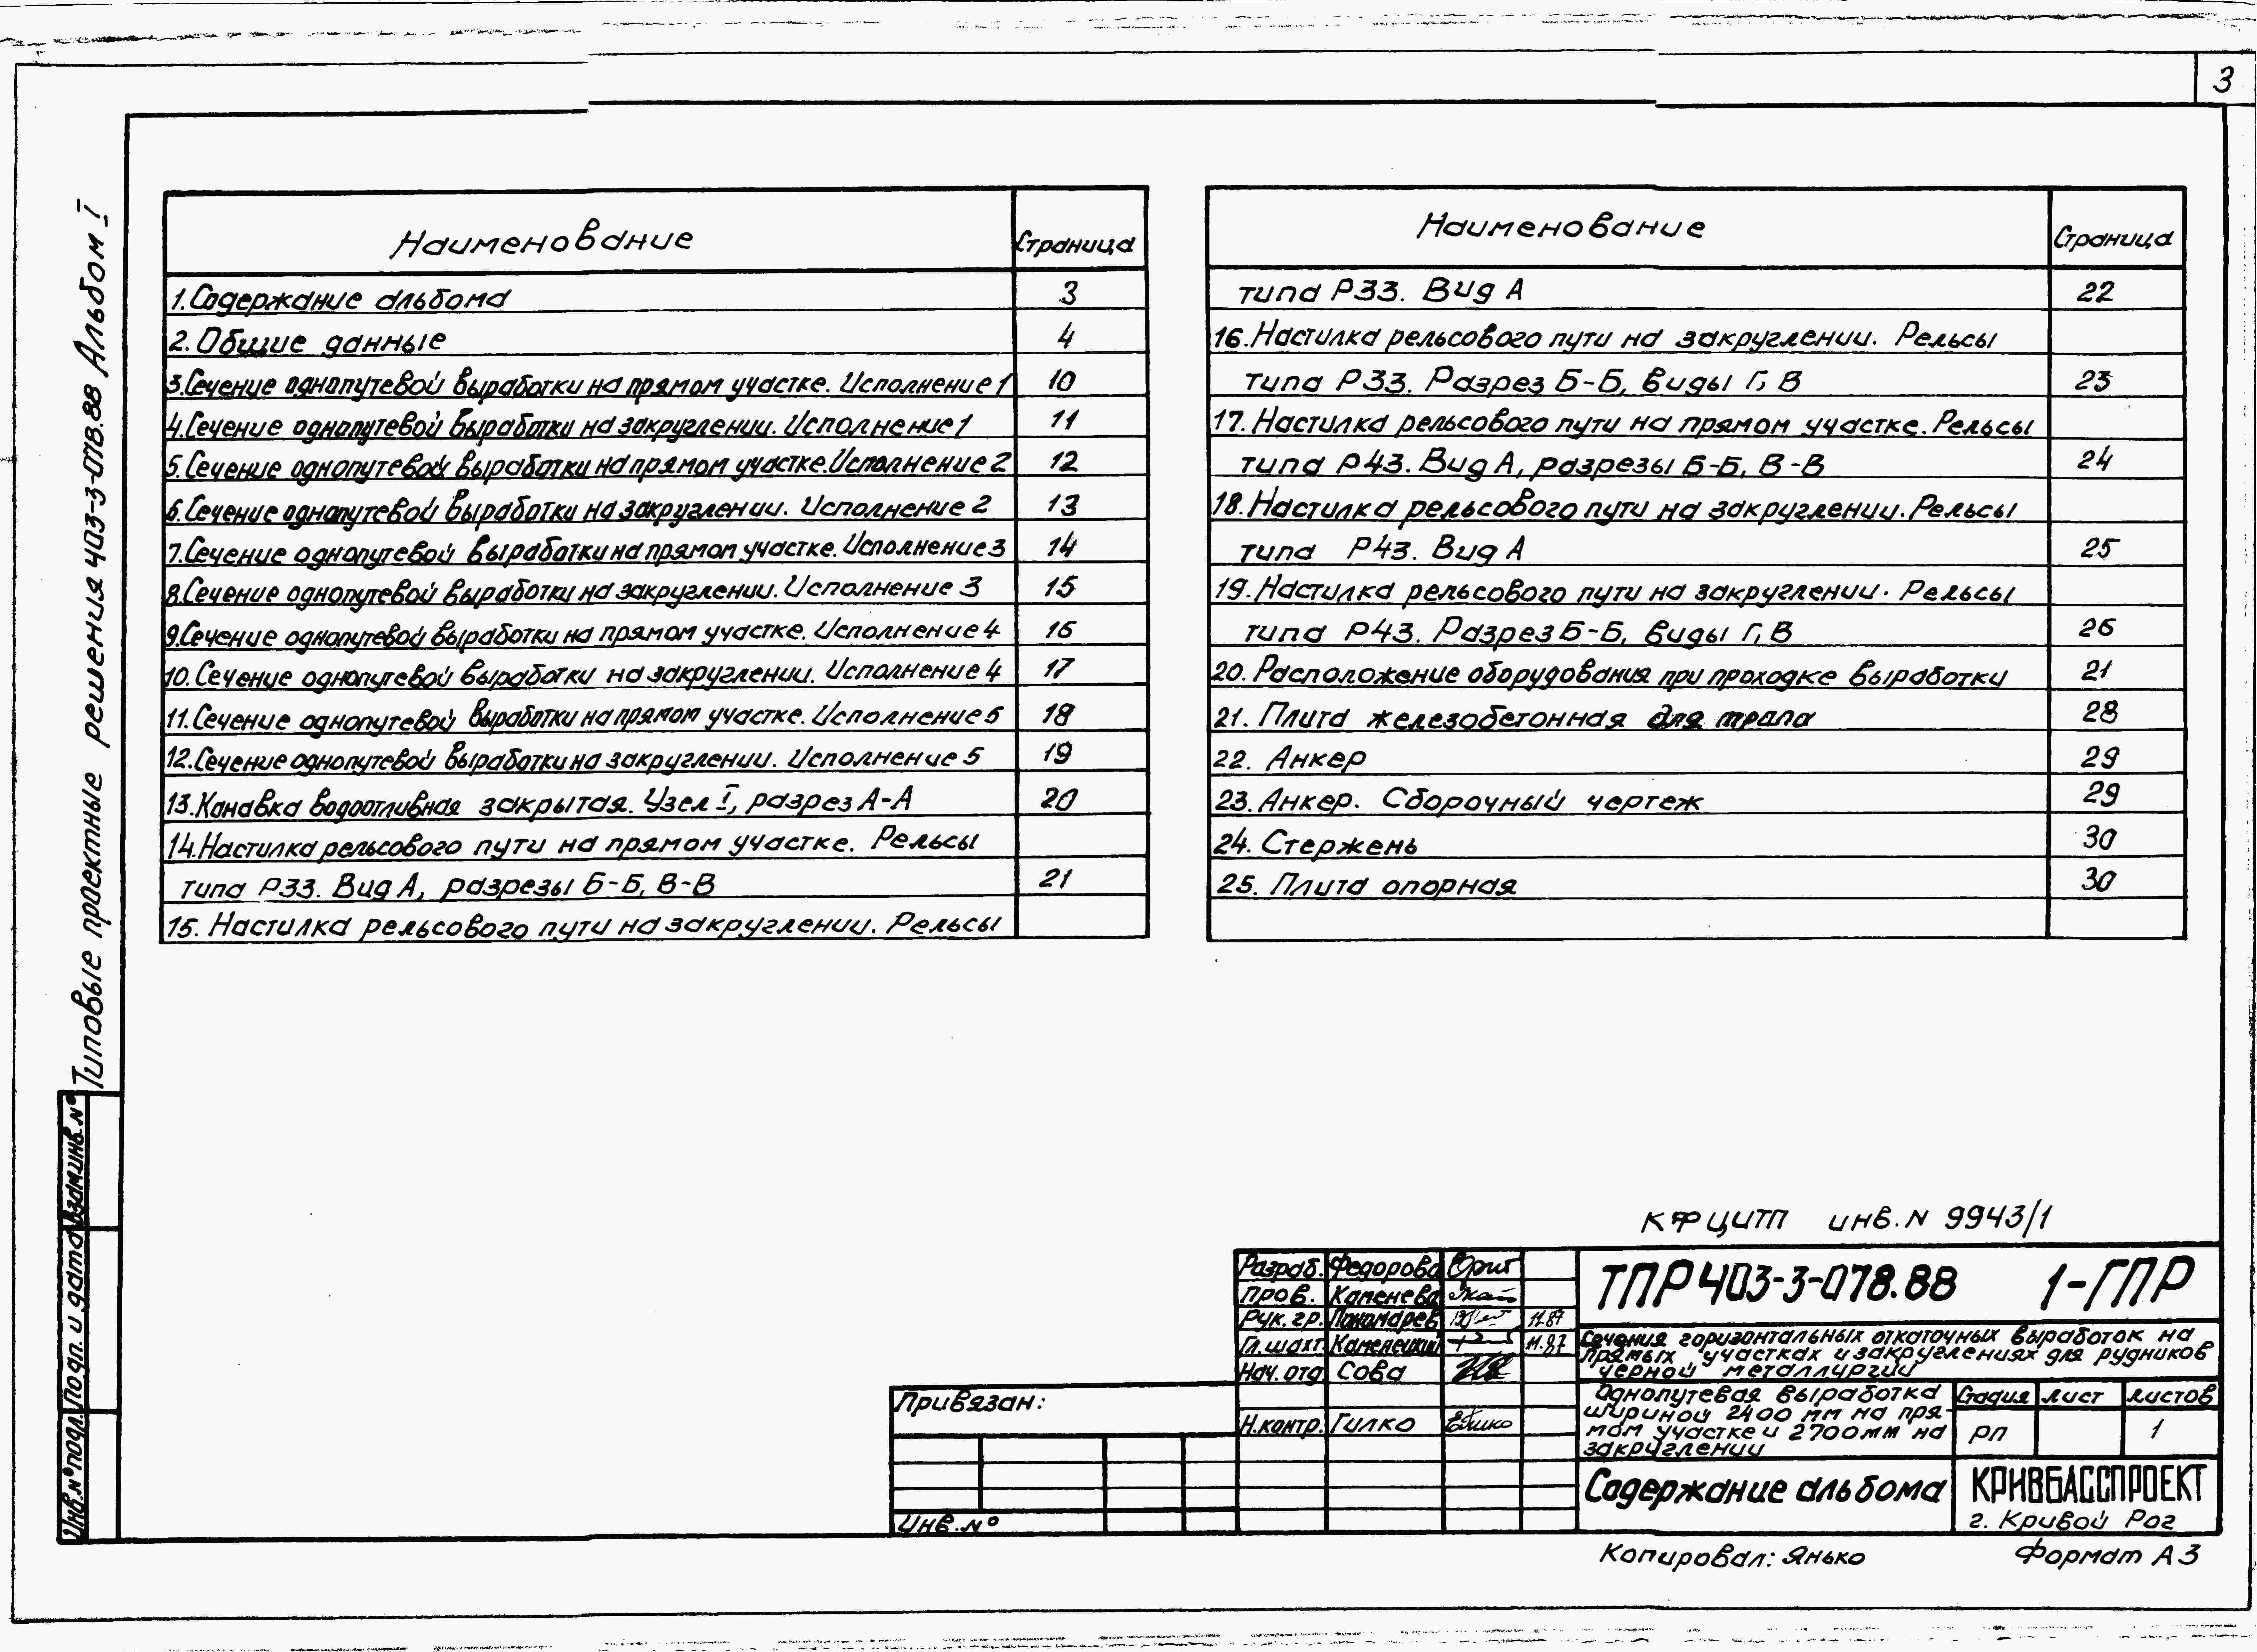 3
Типовые проектные решения 403-3-078.88 Альбом I
Наименование Страница
1. Содержание альбома 3
2. Общие данные 4
3. Сечение однопутевой выработки на прямом участке. Исполнение 1 10
4. Сечение однопутевой выработки на закруглении. Исполнение 1 11
5. Сечение однопутевой выработки на прямом участке. Исполнение 2 12
6. Сечение однопутевой выработки на закруглении. Исполнение 2 13
7. Сечение однопутевой выработки на прямом участке. Исполнение 3 14
8. Сечение однопутевой выработки на закруглении. Исполнение 3 15
9. Сечение однопутевой выработки на прямом участке. Исполнение 4 16
10. Сечение однопутевой выработки на закруглении. Исполнение 4 17
11. Сечение однопутевой выработки на прямом участке. Исполнение 5 18
12. Сечение однопутевой выработки на закруглении. Исполнение 5 19
13. Канавка водоотливная закрытая. Узел I, разрез А-А 20
14. Настилка рельсового пути на прямом участке. Рельсы
типа Р33. Вид А, разрезы Б-Б, В-В 21
15. Настилка рельсового пути на закруглении. Рельсы
Наименование Страница
типа Р33. Вид А 22
16. Настилка рельсового пути на закруглении. Рельсы
типа Р33. Разрез Б-Б, виды Г, В 23
17. Настилка рельсового пути на прямом участке. Рельсы
типа Р43. Вид А, разрезы Б-Б, В-В 24
18. Настилка рельсового пути на закруглении. Рельсы
типа Р43. Вид А 25
19. Настилка рельсового пути на закруглении. Рельсы
типа Р43. Разрез Б-Б, виды Г, В 26
20. Расположение оборудования при проходке выработки 21
21. Плита железобетонная для трапа 28
22. Анкер 29
23. Анкер. Сборочный чертеж 29
24. Стержень 30
25. Плита опорная 30
КФ ЦИТП инв. N 9943/1
Разраб. Федорова
Пров. Каменева
Рук. гр. Пономарев 11.87
Гл. шахт. Каменецкий 11.87
Нач. отд. Сова
Н. контр. Гилко
ТПР 403-3-078.88 1-ГПР
Сечения горизонтальных откаточных выработок на
прямых участках и закруглениях для рудников
черной металлургии
Однопутевая выработка
шириной 2400 мм на пря-
мом участке и 2700 мм на
закруглении
Стадия Лист Листов
РП 1
Содержание альбома
КРИВБАССПРОЕКТ
г. Кривой Рог
Привязан:
Инв. №
Взам.инв.№
Подп. и дата
Инв.№ подл.
Копировал: Янько
Формат А3